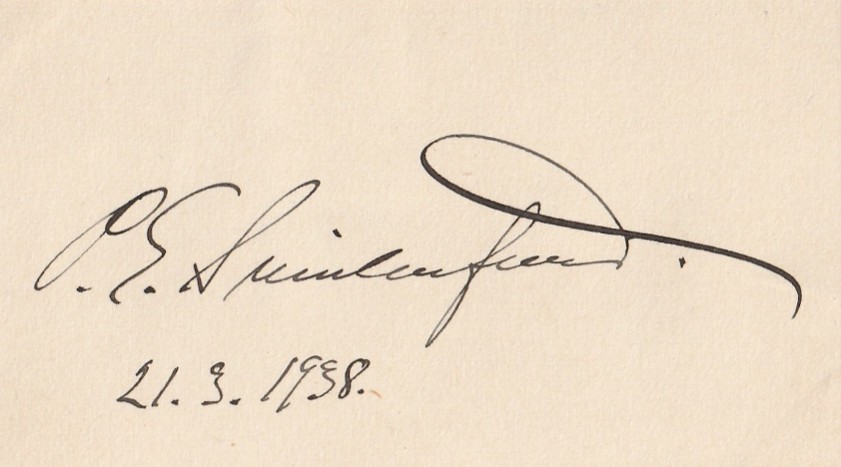 P. E. Svinhufvud.
21. 3. 1938.